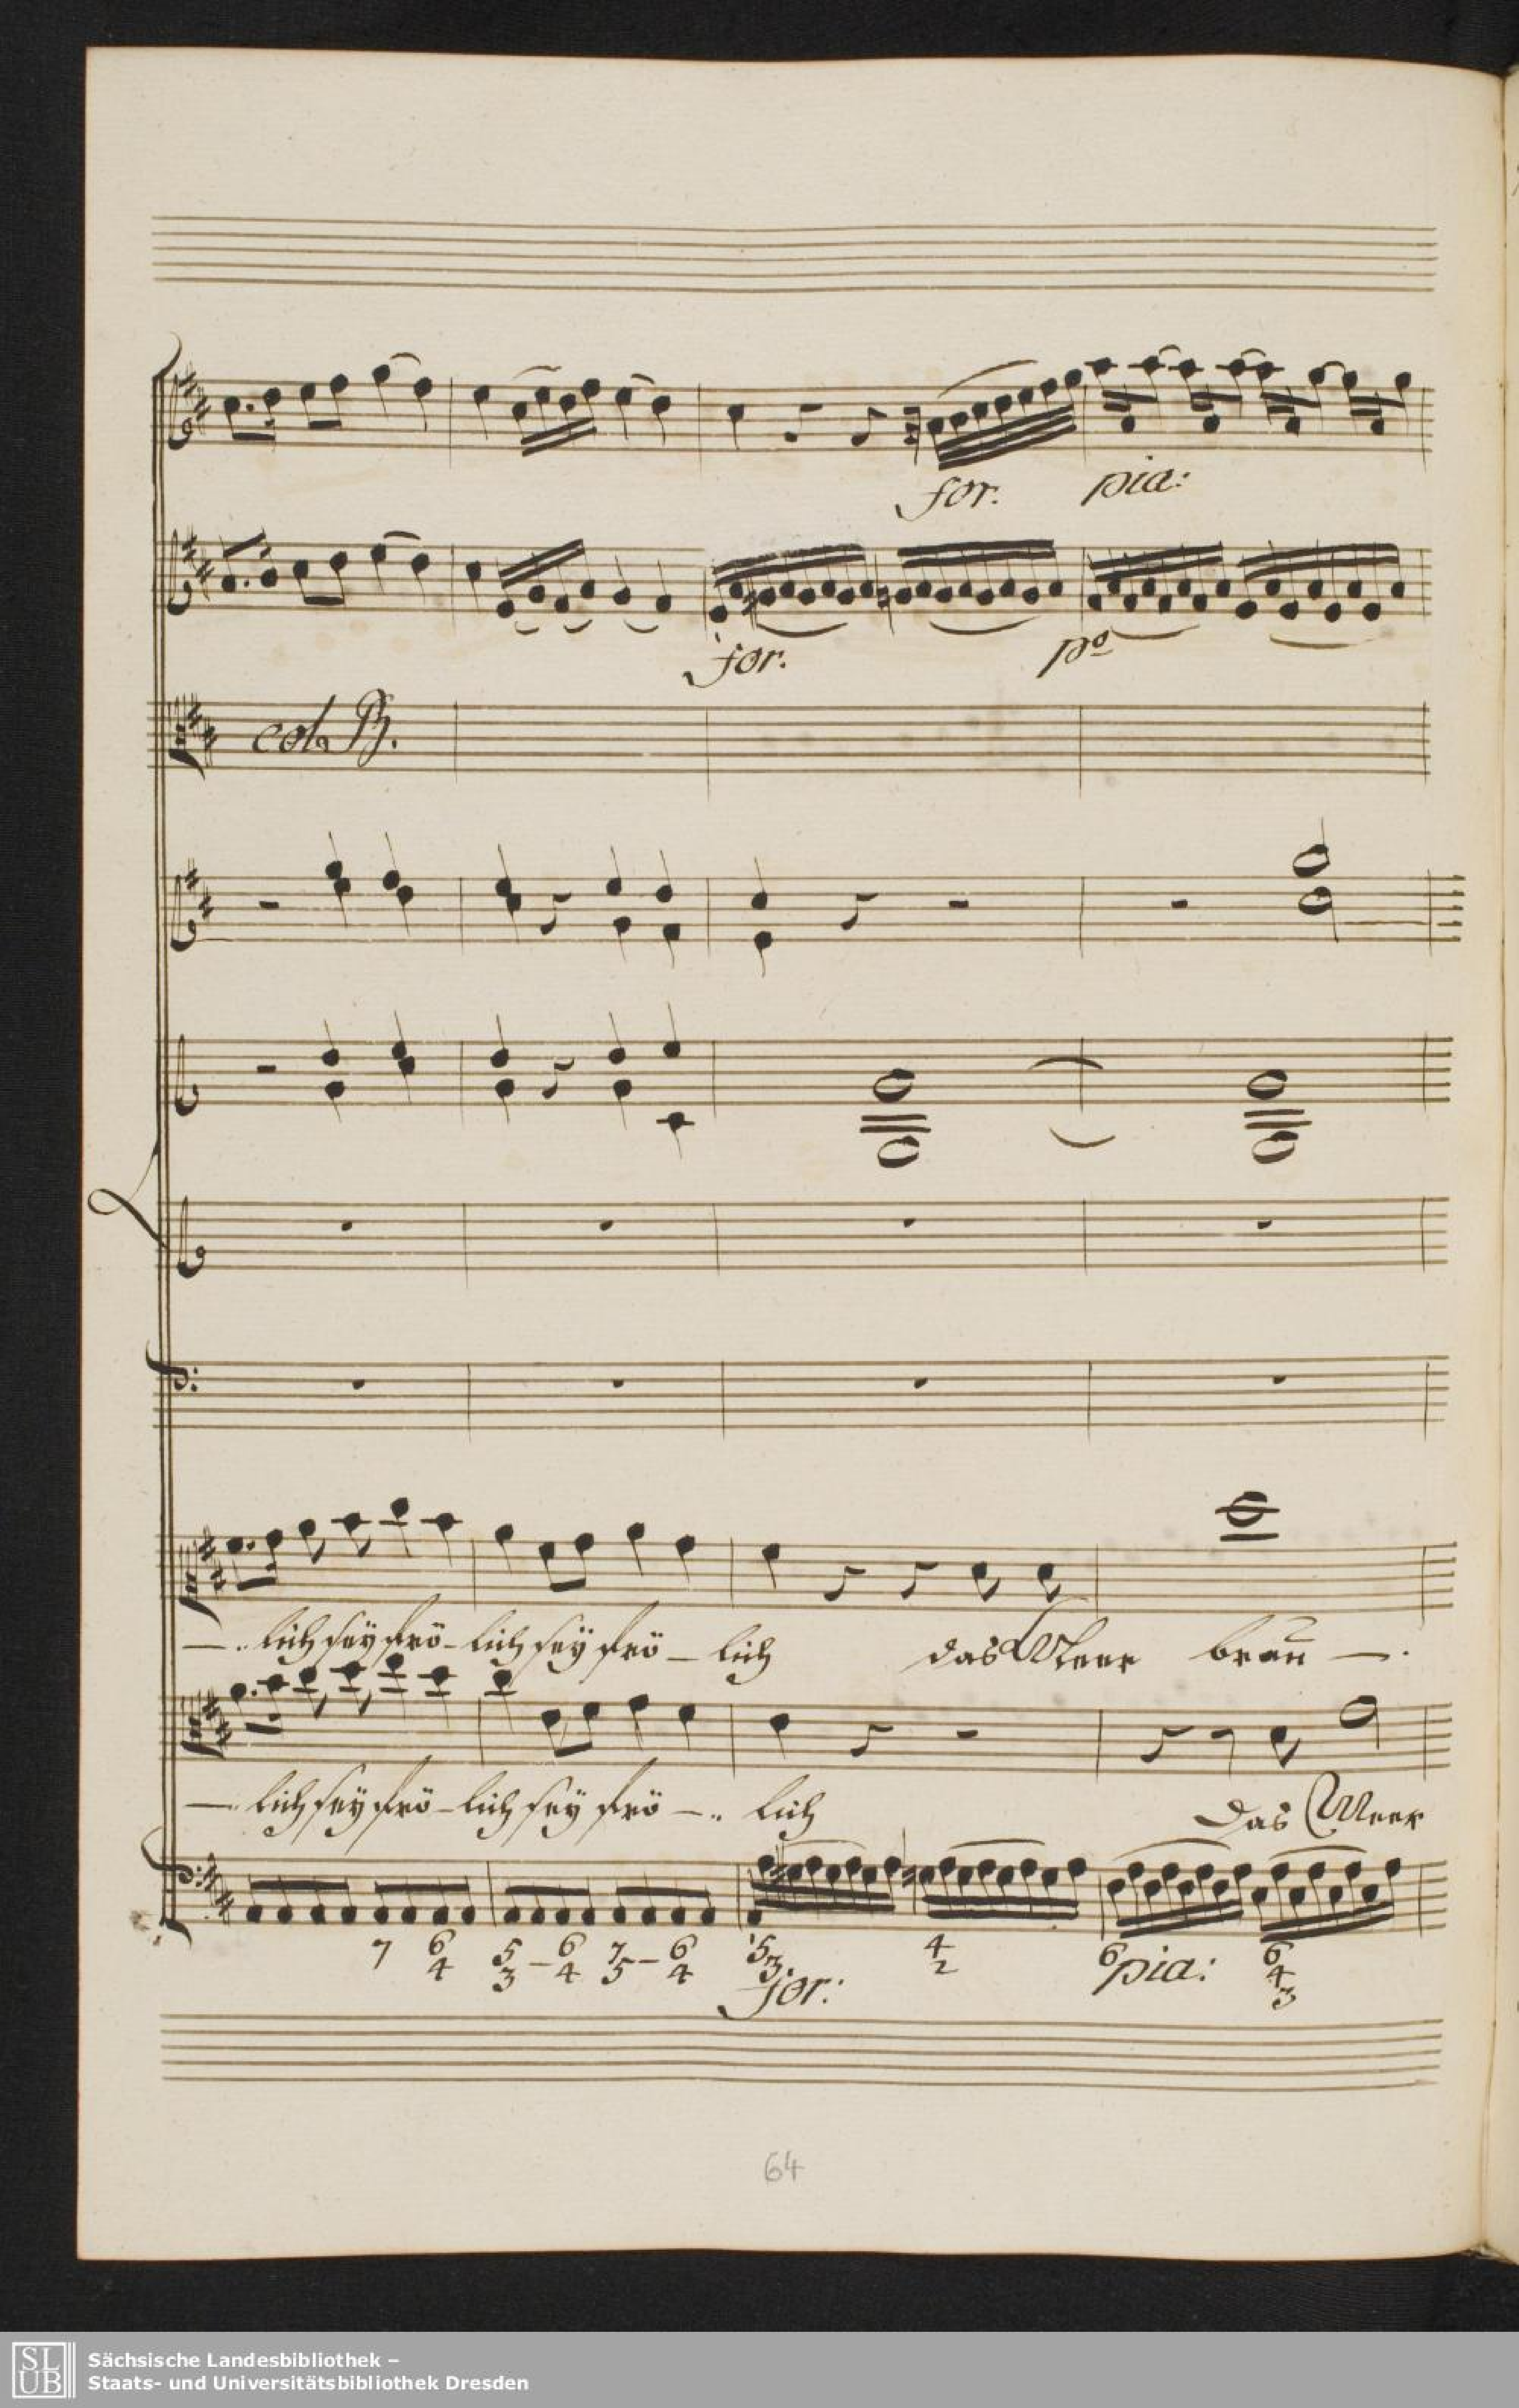 for. pia:
for. po
col B.
–.. lich sey frö – lich sey frö – lich das Meer brau̅ –.
–.. lich sey frö – lich sey frö –.. lich das Meer
7 6 5 – 6 7 – 6 5 4 6 6
4 3 4 5 4 3 2 4
3
for: pia:
64
SLUB
Sächsische Landesbibliothek –
Staats- und Universitätsbibliothek Dresden